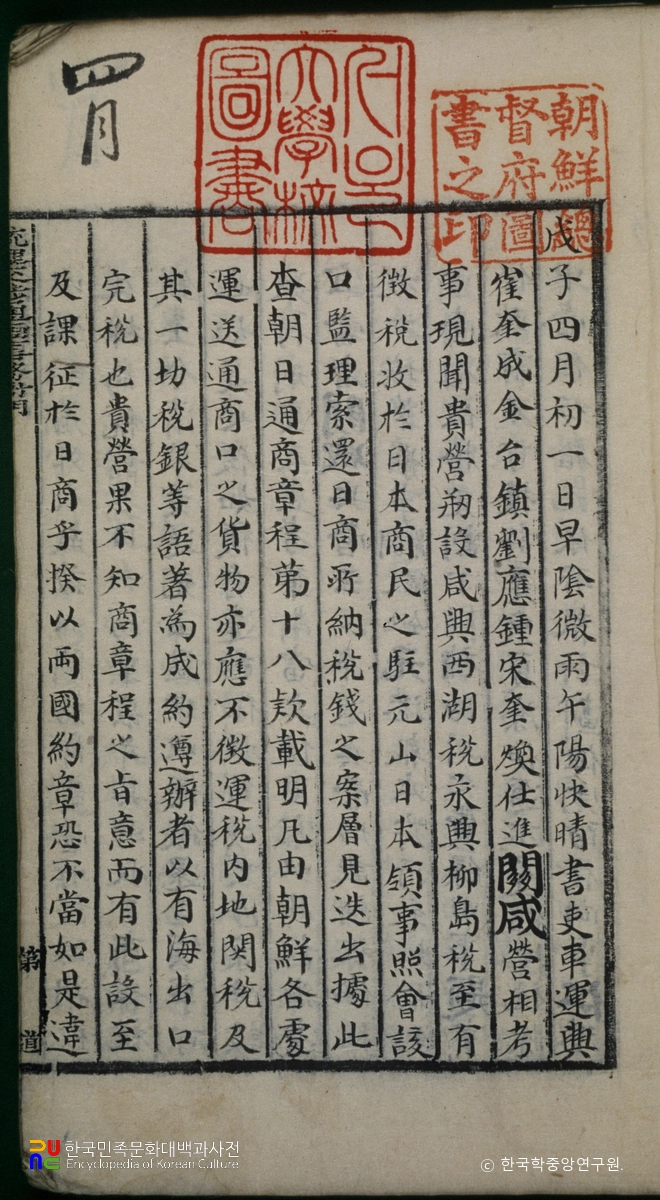 四月
朝鮮總
督府圖
書之印
大學校
圖書
戊子四月初一日早陰微雨午陽快晴書吏車運興
崔奎成金台鎮劉應鍾宋奎煥仕進關咸營相考
事現聞貴營刱設咸興西湖稅永興柳島稅至有
徵稅收於日本商民之駐元山日本領事照會該
口監理索還日商所納稅錢之案層見迭出據此
查朝日通商章程第十八款載明凡由朝鮮各處
運送通商口之貨物亦應不徵運稅內地関稅及
其一切稅銀等語著為成約遵辦者以有海出口
完稅也貴營果不知商章程之旨意而有此設至
及課征於日商乎揆以兩國約章恐不當如是違
統理交涉通商事務衙門
한국민족문화대백과사전
Encyclopedia of Korean Culture
© 한국학중앙연구원.